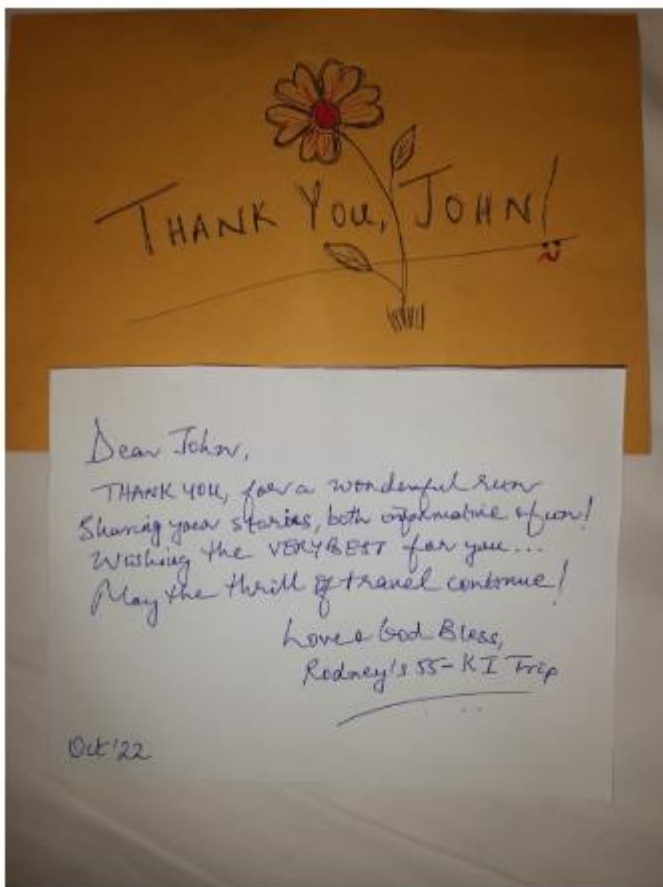 THANK YOU, JOHN!
Dear John,
THANK YOU, for a wonderful run
Sharing your stories, both informative & fun!
Wishing the VERY BEST for you...
May the thrill of travel continue!
Love & God Bless,
Rodney's 55-KI Trip
Oct '22